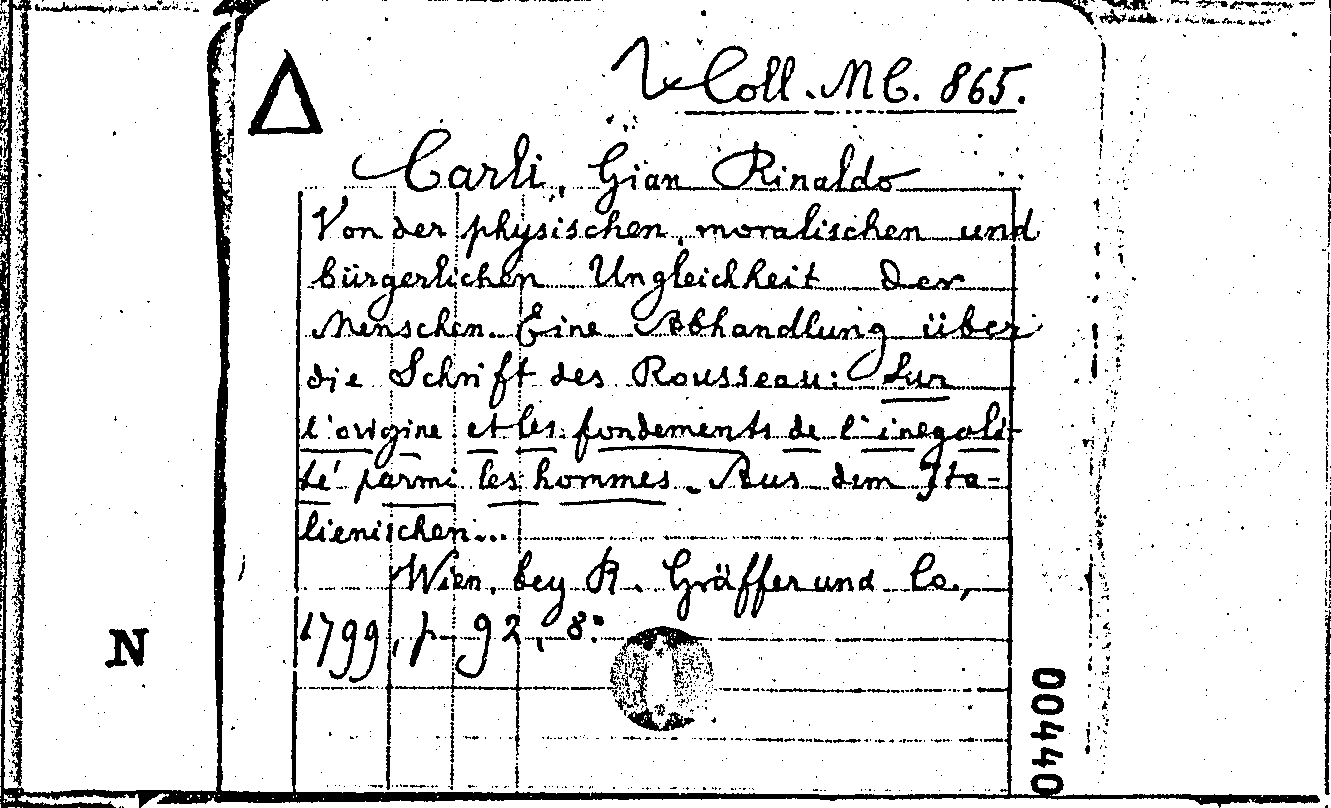 Coll. MC. 865.
Carli, Gian Rinaldo
Von der physischen, moralischen und
bürgerlichen Ungleichheit der
Menschen. Eine Abhandlung über
die Schrift des Rousseau: Sur
l'origine et les fondements de l'inegali-
té parmi les hommes. Aus dem Ita-
lienischen...
Wien, bey R. Gräffer und Co.,
1799, p. 92, 8.°
N
00440